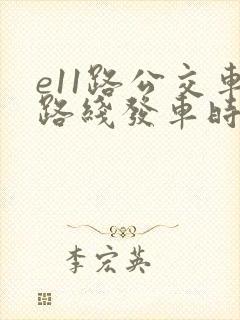 e11路公交車
路綫發車時
李宏英